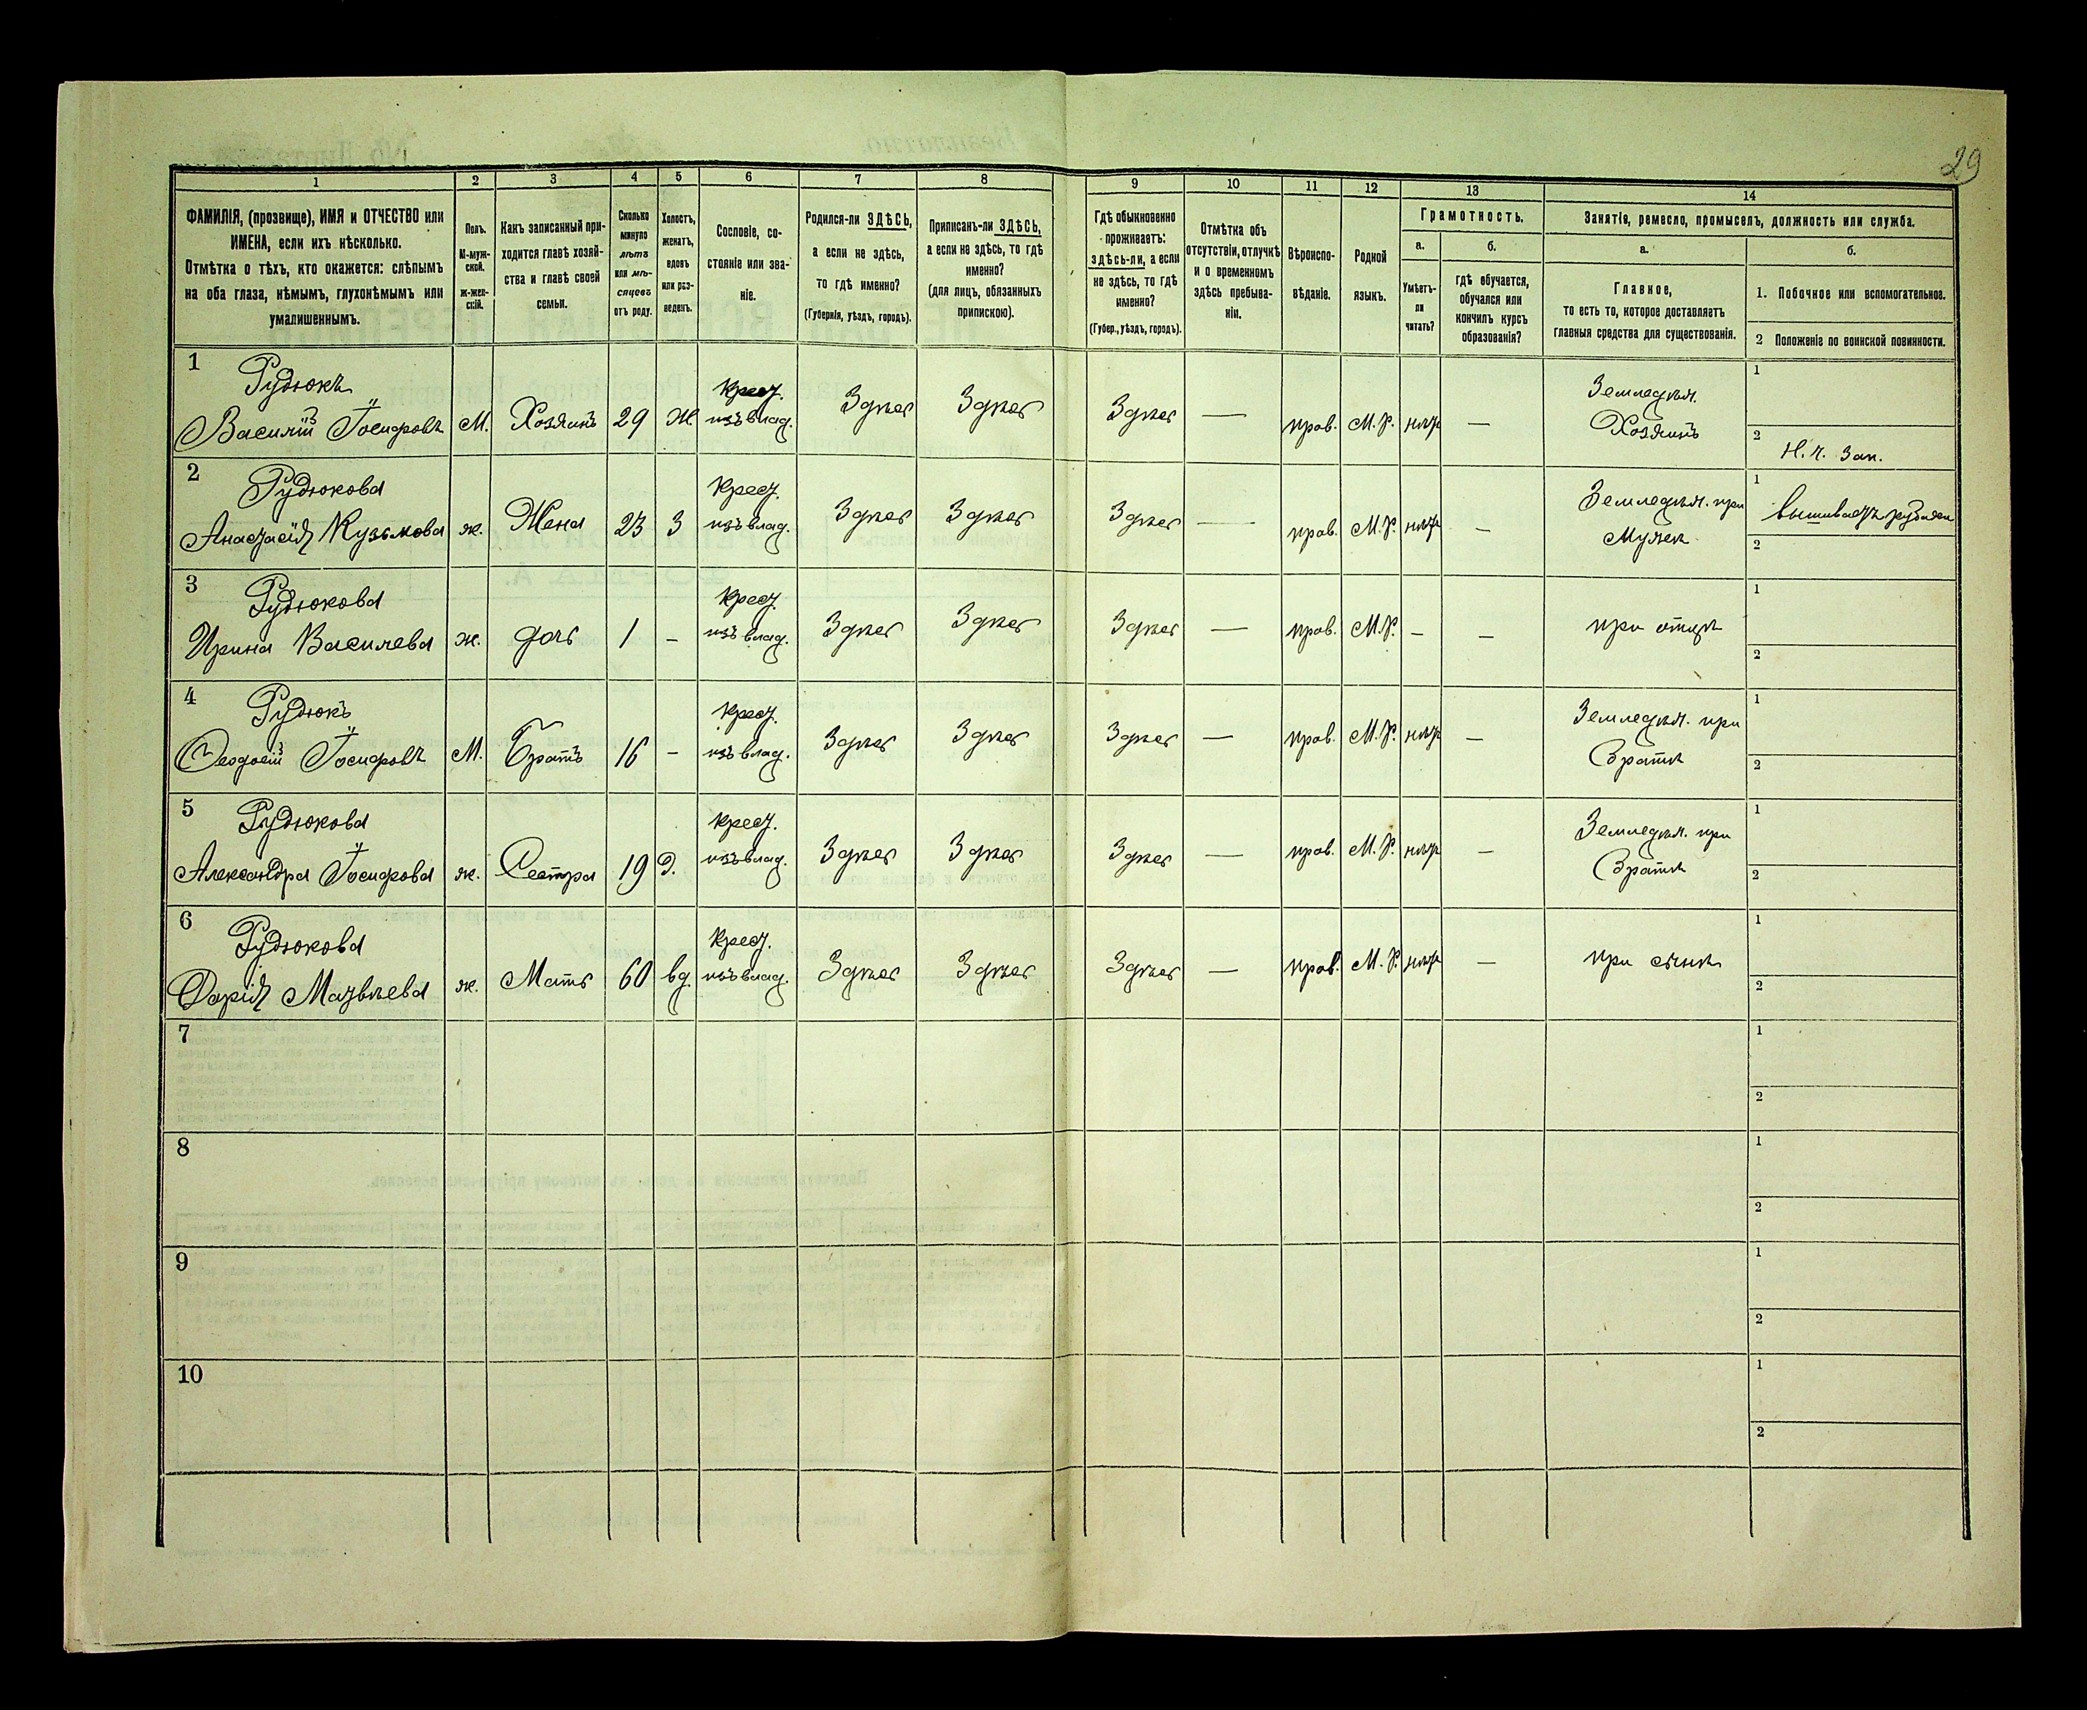 29
1 2 3 4 5 6 7 8 9 10 11 12 13 14
ФАМИЛІЯ, (прозвище), ИМЯ и ОТЧЕСТВО или
ИМЕНА, если ихъ нѣсколько.
Отмѣтка о тѣхъ, кто окажется: слѣпымъ
на оба глаза, нѣмымъ, глухонѣмымъ или
умалишеннымъ.
Полъ.
М-муж-
ской.
ж-жен-
скій.
Какъ записанный при-
ходится главѣ хозяй-
ства и главѣ своей
семьи.
Сколько
минуло
лѣтъ
или мѣ-
сяцевъ
отъ роду.
Холостъ,
женатъ,
вдовъ
или раз-
веденъ.
Сословіе, со-
стояніе или зва-
ніе.
Родился-ли ЗДѢСЬ,
а если не здѣсь,
то гдѣ именно?
(Губернія, уѣздъ, городъ).
Приписанъ-ли ЗДѢСЬ,
а если не здѣсь, то гдѣ
именно?
(для лицъ, обязанныхъ
припискою).
Гдѣ обыкновенно
проживаетъ:
здѣсь-ли, а если
не здѣсь, то гдѣ
именно?
(Губер., уѣздъ, городъ).
Отмѣтка объ
отсутствіи, отлучкѣ
и о временномъ
здѣсь пребыва-
ніи.
Вѣроиспо-
вѣданіе.
Родной
языкъ.
Грамотность.
а.
Умѣетъ-
ли
читать?
б.
гдѣ обучается,
обучался или
кончилъ курсъ
образованія?
Занятіе, ремесло, промыселъ, должность или служба.
а.
Главное,
то есть то, которое доставляетъ
главныя средства для существованія.
б.
1. Побочное или вспомогательное.
2 Положеніе по воинской повинности.
1
Рудюкъ
Василій Іосифовъ М. Хозяинъ 29 Ж.
Крест.
изъ влад.
Здѣсь Здѣсь Здѣсь — прав. М. Р. нѣтъ —
Земледѣл.
Хозяинъ
1
2
Н. ч. зап.
2
Рудюкова
Анастасія Кузьмова ж. Жена 23 З
Крест.
изъ влад.
Здѣсь Здѣсь Здѣсь — прав. М. Р. нѣтъ —
Земледѣл. при
Мужѣ
1
вышиваетъ рубахи
2
3
Рудюкова
Ирина Василева ж. дочь 1 –
Крест.
изъ влад.
Здѣсь Здѣсь Здѣсь — прав. М. Р. – —
при отцѣ
1
2
4
Рудюкъ
Ѳеодосій Іосифовъ М. Братъ 16 –
Крест.
изъ влад.
Здѣсь Здѣсь Здѣсь — прав. М. Р. нѣтъ —
Земледѣл. при
Братѣ
1
2
5
Рудюкова
Александра Іосифова ж. Сестра 19 Д.
Крест.
изъ влад.
Здѣсь Здѣсь Здѣсь — прав. М. Р. нѣтъ —
Земледѣл. при
Братѣ
1
2
6
Рудюкова
Дарія Матвѣева ж. Мать 60 вд.
Крест.
изъ влад.
Здѣсь Здѣсь Здѣсь — прав. М. Р. нѣтъ —
при сынѣ
1
2
7
1
2
8
1
2
9
1
2
10
1
2